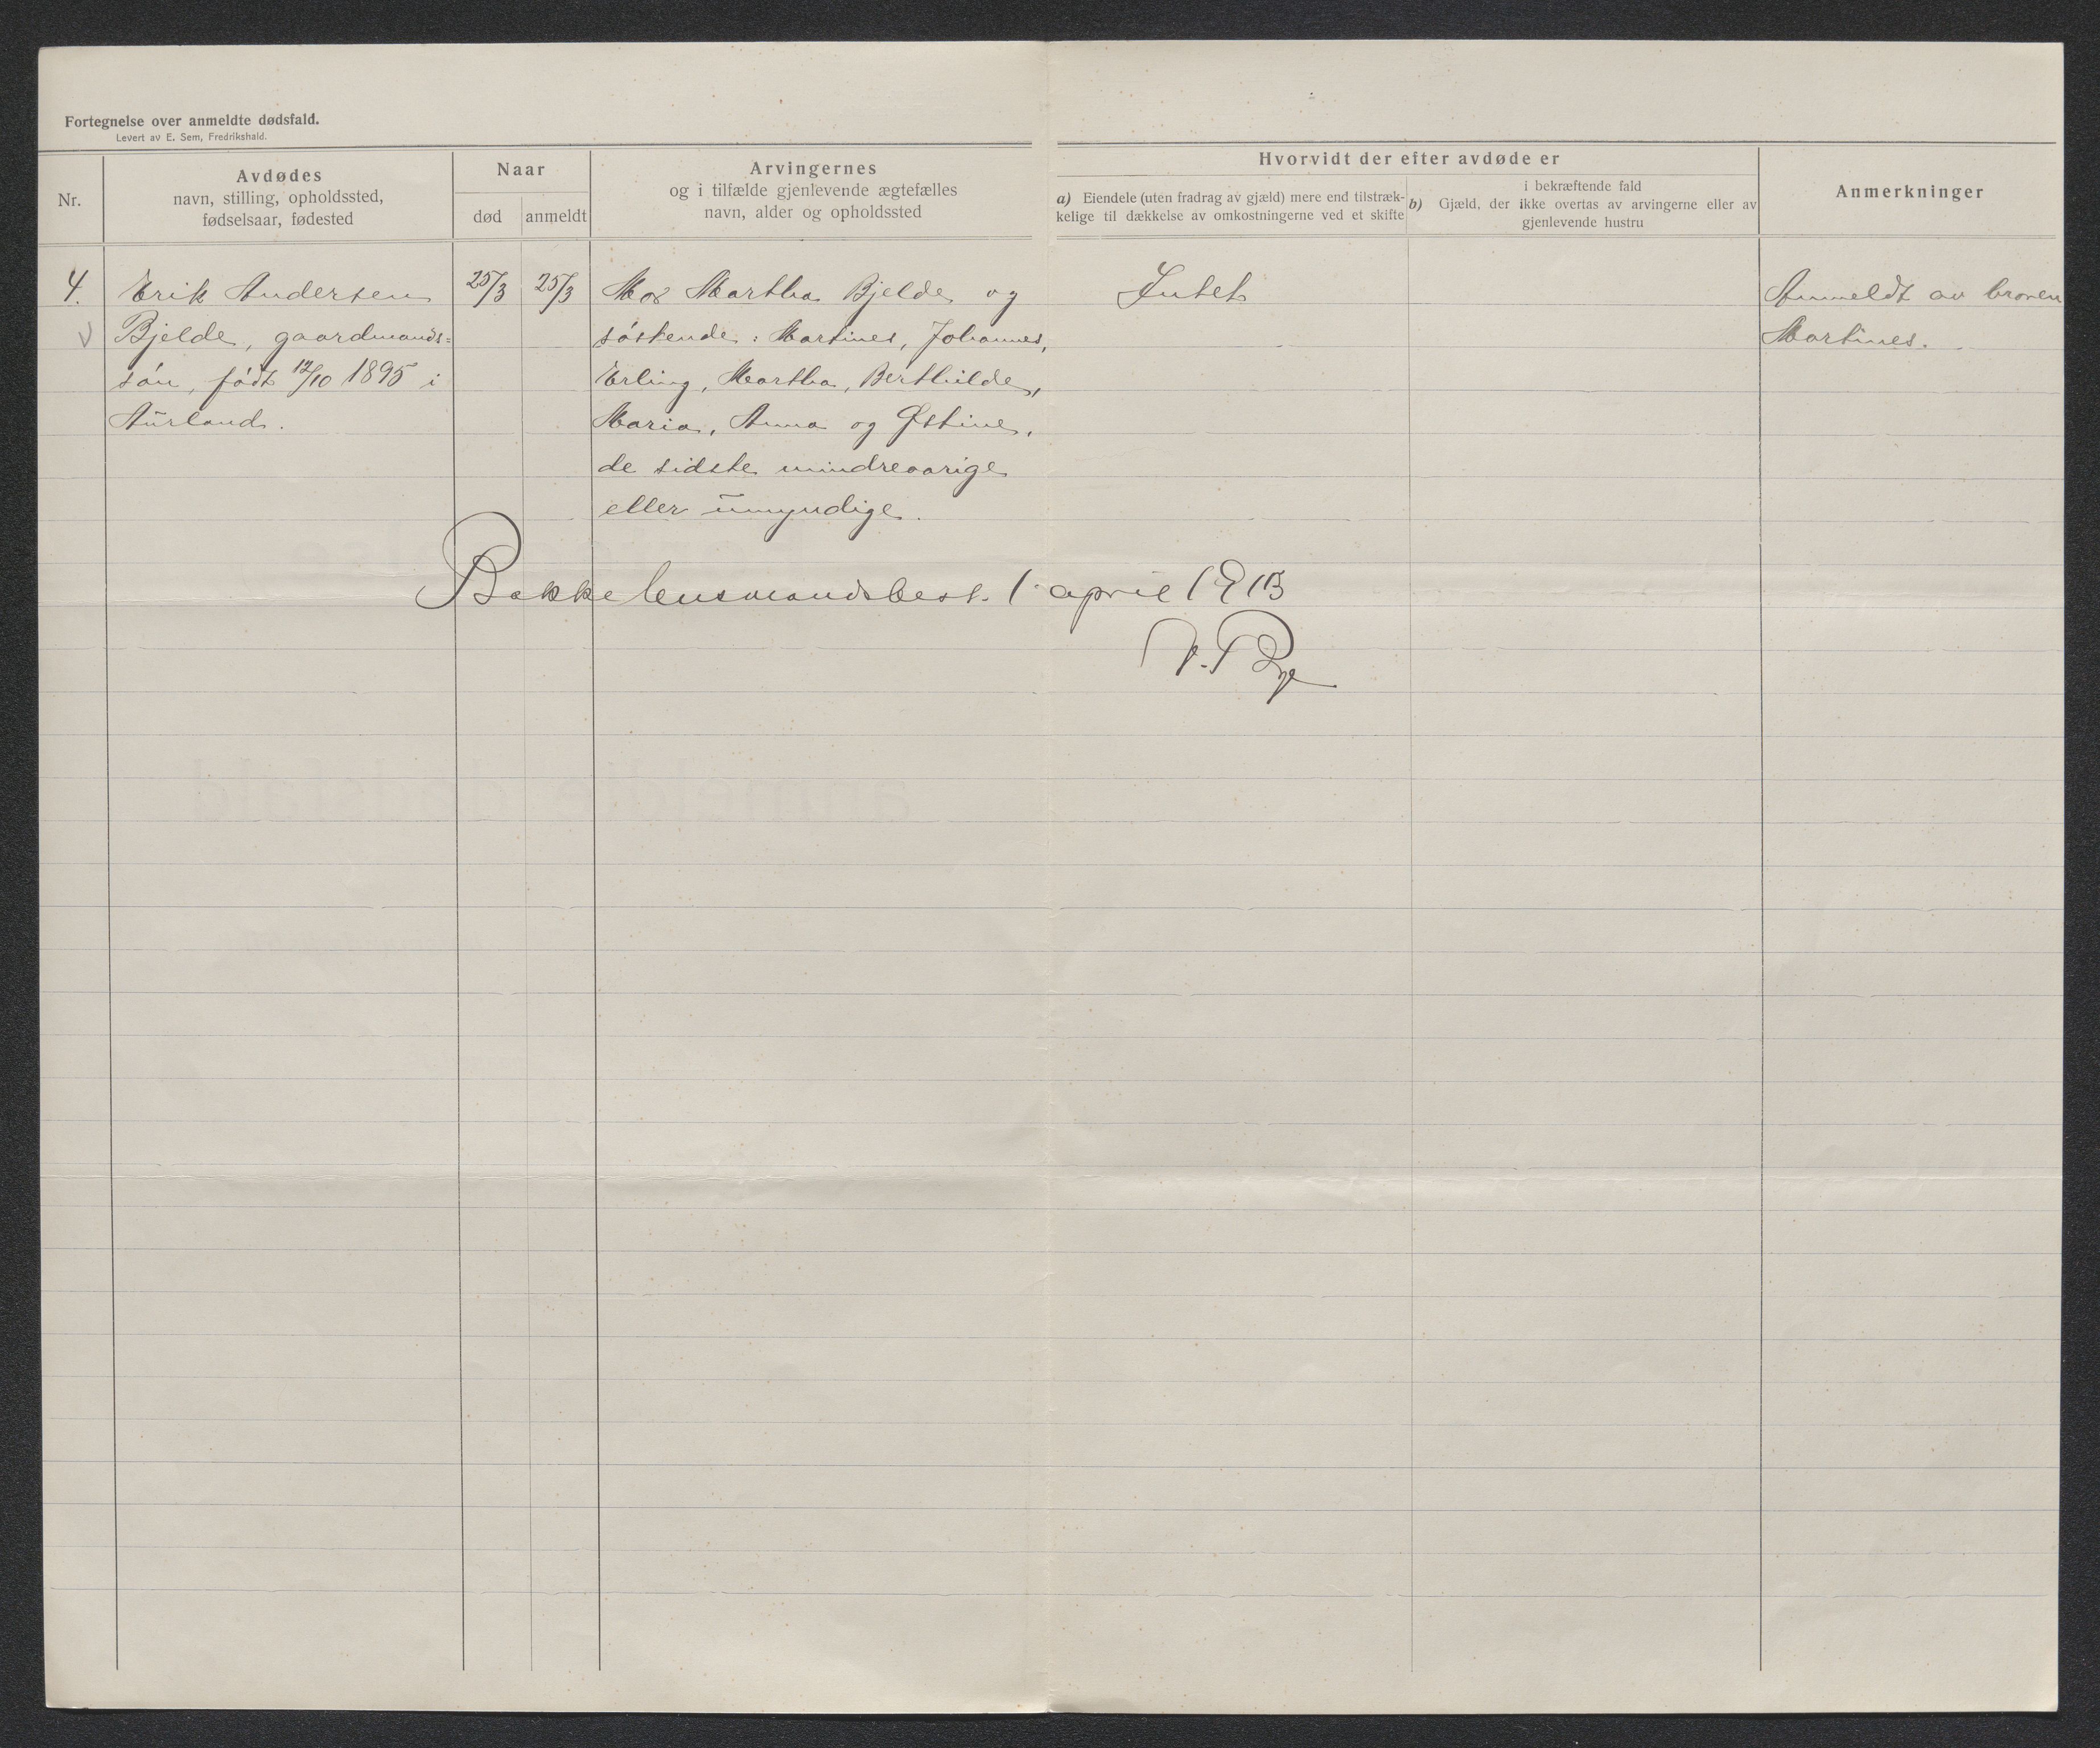 Fortegnelse over anmeldte dødsfald.
Levert av E. Sem, Fredrikshald.
Nr.
Avdødes
navn, stilling, opholdssted,
fødselsaar, fødested
Naar
død
anmeldt
Arvingernes
og i tilfælde gjenlevende ægtefælles
navn, alder og opholdssted
Hvorvidt der efter avdøde er
a) Eiendele (uten fradrag av gjæld) mere end tilstræk-
kelige til dækkelse av omkostningerne ved et skifte
i bekræftende fald
b) Gjæld, der ikke overtas av arvingerne eller av
gjenlevende hustru
Anmerkninger
4.
Erik Andersen
Bjelde, gaardmands=
søn, født 12/10 1895 i
Aurland.
25/3
25/3
Mor Martha Bjelde og
søskende: Martines, Johannes,
Erling, Martha, Berthilde,
Maria, Anna og Østine,
de sidste mindreaarige
eller umyndige.
Intet
Anmeldt av broren
Martines.
Bakke lensmandsbest. 1 april 1915